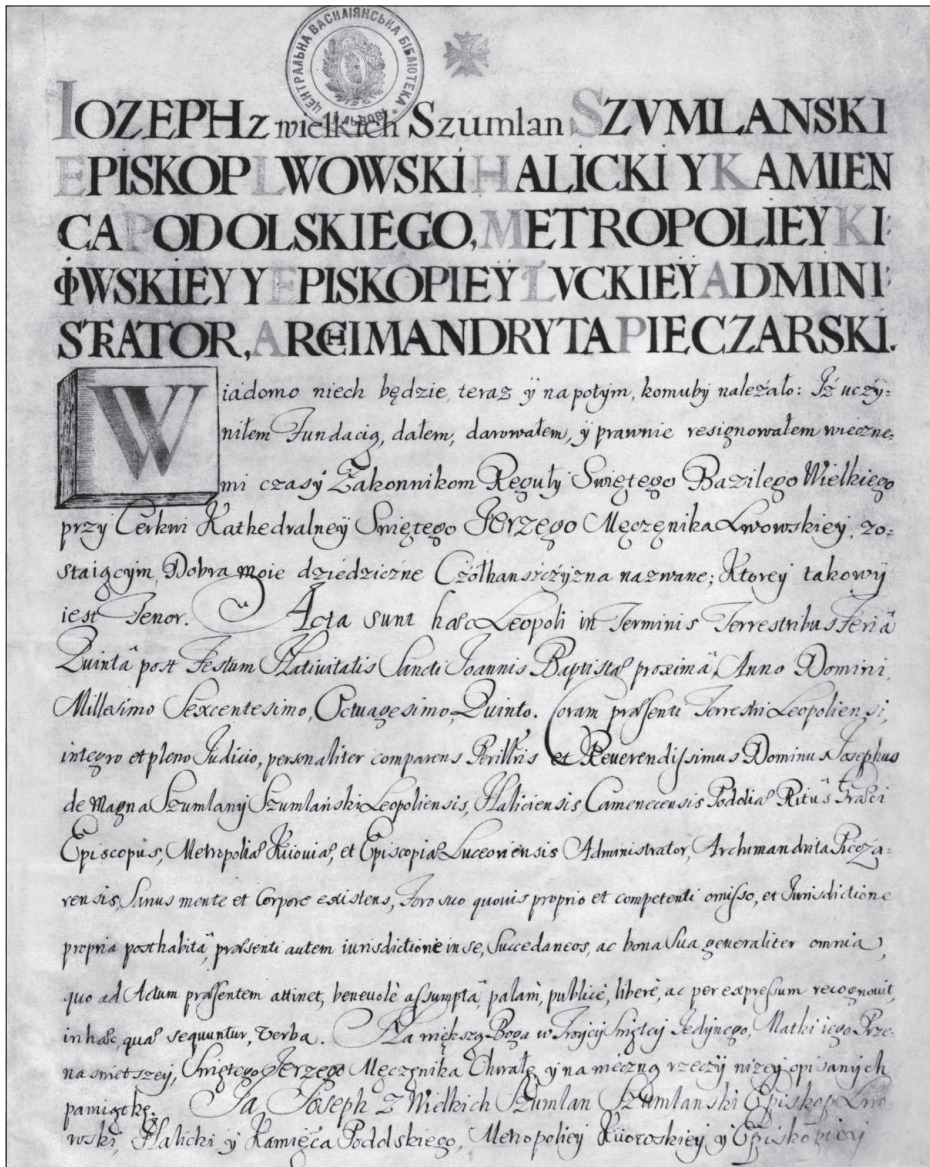 ЦЕНТРАЛЬНА ВАСИЛІЯНСЬКА БІБЛІОТЕКА
ЛЬВОВІ
IOZEPH z wielkich Szumlan SZVMLANSKI
EPISKOP LWOWSKI HALICKI Y KAMIEN
CA PODOLSKIEGO, METROPOLIEY KI:
ÏOWSKIEY Y EPISKOPIEŸ ŁVCKIEŸ ADMINI:
STRATOR, ARCHIMANDRYTA PIECZARSKI.
Wiádomo niech będzie, teraz ÿ na potÿm, komubÿ należało: Iż uczÿ:
niłem Fundacią, dałem, darowałem, ÿ prawnie resignowałem wieczne:
mi czasÿ Zakonnikom Regułÿ Swiętego Bazilego Wielkiego
przy Cerkwi Kathedralneÿ Swiętego Jerzego Męczęnika Lwowskieÿ, zo:
staiącÿm, Dobra moie dziedziczne Czółhansczÿzna nazwane; Ktoreÿ takowÿ
iest Tenor. Acta sunt hæc Leopoli in Terminis Terrestribus Feriâ
Quintâ post Festum Nativitatis Sancti Joannis Baptistæ proximâ, Anno Domini,
Millesimo Sexcentesimo, Octuagesimo, Quinto. Coram præsenti Terrestri Leopoliensi,
integro et pleno Judicio, personaliter comparens Perillris et Reverendissimus Dominus Josephus
de Magna Szumlany Szumlański Leopoliensis, Haliciensis, Camenecensis Podoliæ Ritûs Græci
Episcopus, Metropoliæ Kiioviæ, et Episcopiæ Luceoriensis Administrator, Archimandrita Pieczá:
rensis, Sanus mente et Corpore existens, Foro suo quovis proprio et competenti omisso, et Iurisdictione
propria posthabitâ, præsenti autem iurisdictione in se, Succedaneos, ac bona Sua generaliter omnia,
quo ad Actum præsentem attinet, benevolè assumptâ, palàm, publicè, liberè, ac per expressum recognovit,
in hæc, quæ sequuntur, verba. Na większą Boga w Troÿcÿ Swiętej Jedÿnego, Matki iego Prze:
naswietszeÿ, Swiętego Jerzego Męczęnika Chwałę, ÿ na wieczną rzeczÿ niżeÿ opisanÿch
pamiątkę. Ja Joseph z Wielkich Szumlan Szumlanski Episkop Lwo
wski, Halicki ÿ Kamięca Podolskiego, Metropolieÿ Kiiowskieÿ, ÿ Episkopieÿ